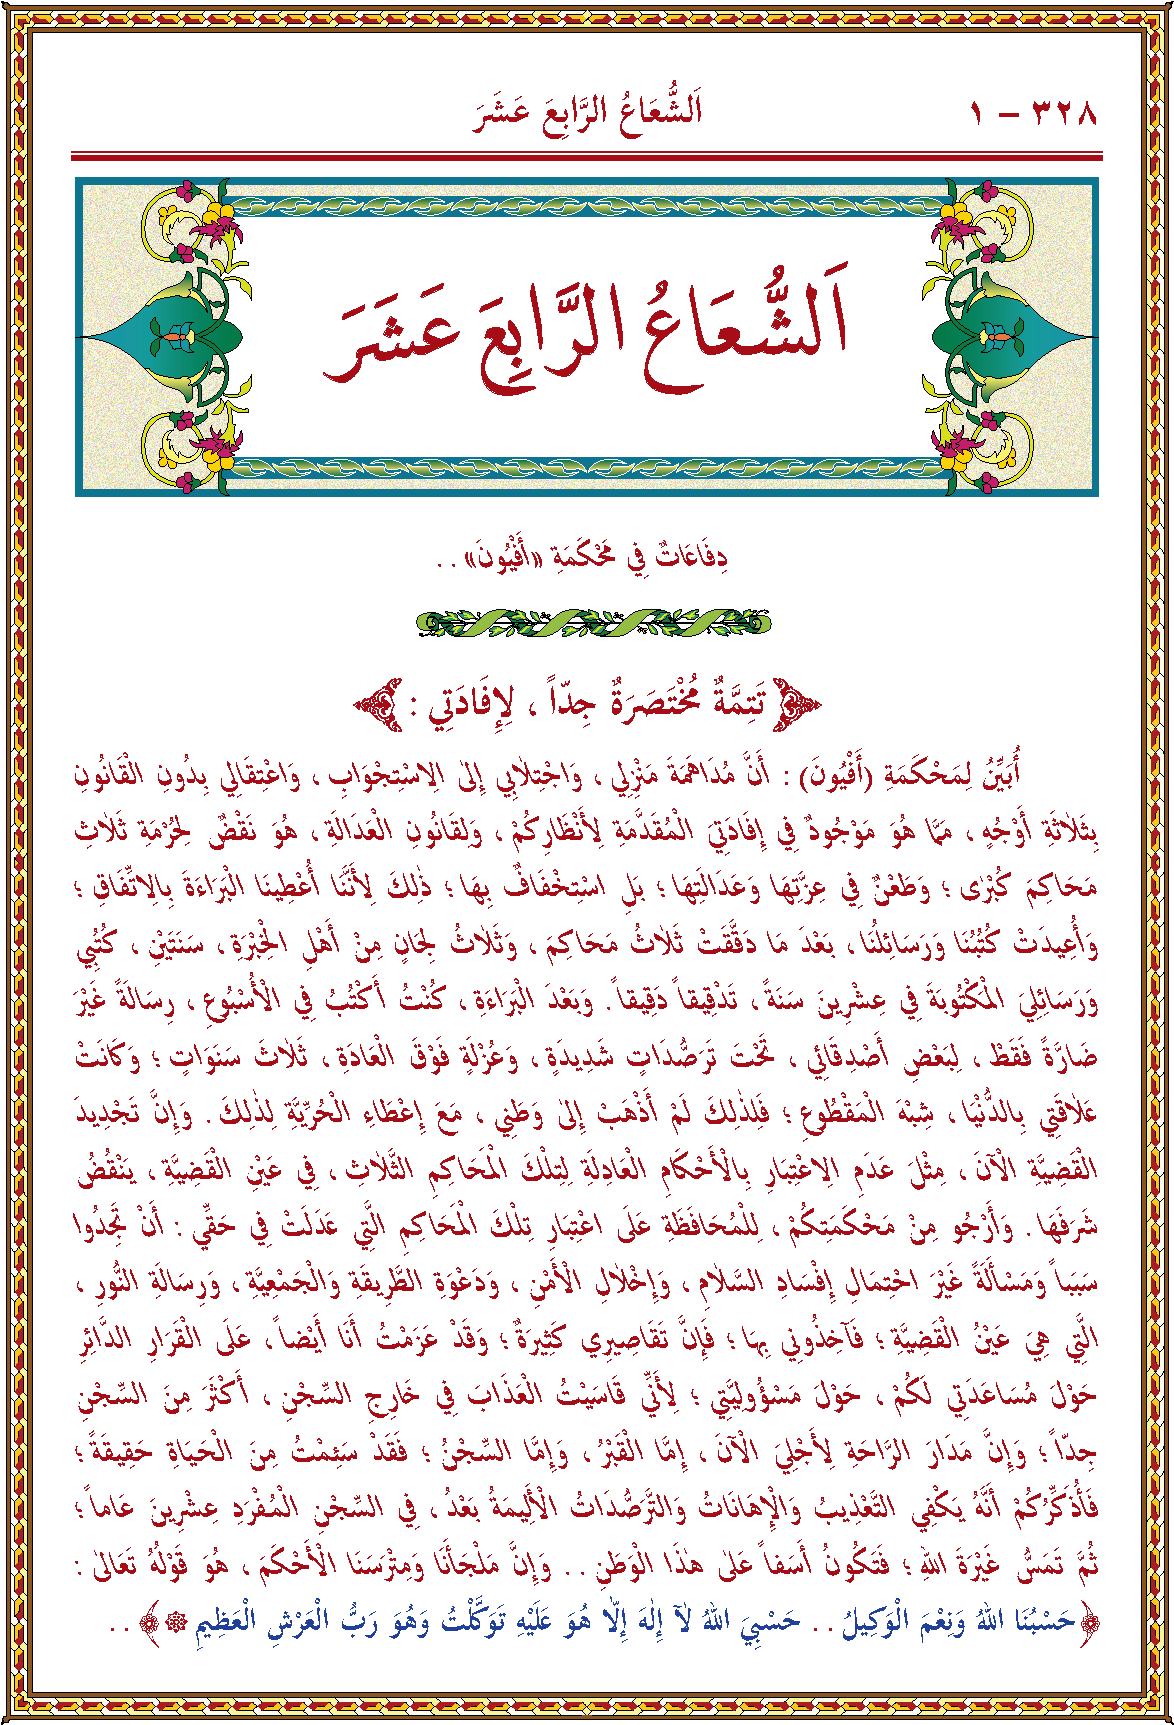 ٣٢٨ – ١
اَلشُّعَاعُ الرَّابِعَ عَشَرَ
اَلشُّعَاعُ الرَّابِعَ عَشَرَ
دِفَاعَاتٌ فِي مَحْكَمَةِ «أَفْيُونَ» . .
تَتِمَّةٌ مُخْتَصَرَةٌ جِدّاً ، لِإِفَادَتِي :
أُبَيِّنُ لِمَحْكَمَةِ (أَفْيُونَ) : أَنَّ مُدَاهَمَةَ مَنْزِلِي ، وَاجْتِلَابِي إِلىٰ الِاسْتِجْوَابِ ، وَاعْتِقَالِي بِدُونِ الْقَانُونِ
بِثَلَاثَةِ أَوْجُهٍ ، مِمَّا هُوَ مَوْجُودٌ فِي إِفَادَتِيَ الْمُقَدَّمَةِ لِأَنْظَارِكُمْ ، وَلِقَانُونِ الْعَدَالَةِ ، هُوَ نَقْضٌ لِحُرْمَةِ ثَلَاثِ
مَحَاكِمَ كُبْرٰى ؛ وَطَعْنٌ فِي عِزَّتِهَا وَعَدَالَتِهَا ؛ بَلِ اسْتِخْفَافٌ بِهَا ؛ ذٰلِكَ لِأَنَّنَا أُعْطِينَا الْبَرَاءَةَ بِالِاتِّفَاقِ ؛
وَأُعِيدَتْ كُتُبُنَا وَرَسَائِلُنَا ، بَعْدَ مَا دَقَّقَتْ ثَلَاثُ مَحَاكِمَ ، وَثَلَاثُ لِجَانٍ مِنْ أَهْلِ الْخِبْرَةِ ، سَنَتَيْنِ ، كُتُبِي
وَرَسَائِلِيَ الْمَكْتُوبَةَ فِي عِشْرِينَ سَنَةً ، تَدْقِيقاً دَقِيقاً . وَبَعْدَ الْبَرَاءَةِ ، كُنْتُ أَكْتُبُ فِي الْأُسْبُوعِ ، رِسَالَةً غَيْرَ
ضَارَّةً فَقَطْ ، لِبَعْضِ أَصْدِقَائِي ، تَحْتَ تَرَصُّدَاتٍ شَدِيدَةٍ ، وَعُزْلَةٍ فَوْقَ الْعَادَةِ ، ثَلَاثَ سَنَوَاتٍ ؛ وَكَانَتْ
عَلَاقَتِي بِالدُّنْيَا ، شِبْهَ الْمَقْطُوعِ ؛ فَلِذٰلِكَ لَمْ أَذْهَبْ إِلىٰ وَطَنِي ، مَعَ إِعْطَاءِ الْحُرِّيَّةِ لِذٰلِكَ . وَإِنَّ تَجْدِيدَ
الْقَضِيَّةِ الْآنَ ، مِثْلَ عَدَمِ الِاعْتِبَارِ بِالْأَحْكَامِ الْعَادِلَةِ لِتِلْكَ الْمَحَاكِمِ الثَّلَاثِ ، فِي عَيْنِ الْقَضِيَّةِ ، يَنْقُضُ
شَرَفَهَا . وَأَرْجُو مِنْ مَحْكَمَتِكُمْ ، لِلْمُحَافَظَةِ عَلَى اعْتِبَارِ تِلْكَ الْمَحَاكِمِ الَّتِي عَدَلَتْ فِي حَقِّي : أَنْ تَجِدُوا
سَبَباً وَمَسْأَلَةً غَيْرَ احْتِمَالِ إِفْسَادِ السَّلَامِ ، وَإِخْلَالِ الْأَمْنِ ، وَدَعْوَةِ الطَّرِيقَةِ وَالْجَمْعِيَّةِ ، وَرِسَالَةِ النُّورِ ،
الَّتِي هِيَ عَيْنُ الْقَضِيَّةِ ؛ فَآخِذُونِي بِهَا ؛ فَإِنَّ تَقَاصِيرِي كَثِيرَةٌ ؛ وَقَدْ عَزَمْتُ أَنَا أَيْضاً ، عَلَى الْقَرَارِ الدَّائِرِ
حَوْلَ مُسَاعَدَتِي لَكُمْ ، حَوْلَ مَسْؤُولِيَّتِي ؛ لِأَنِّي قَاسَيْتُ الْعَذَابَ فِي خَارِجِ السِّجْنِ ، أَكْثَرَ مِنَ السِّجْنِ
جِدّاً ؛ وَإِنَّ مَدَارَ الرَّاحَةِ لِأَجْلِيَ الْآنَ ، إِمَّا الْقَبْرُ ، وَإِمَّا السِّجْنُ ؛ فَقَدْ سَئِمْتُ مِنَ الْحَيَاةِ حَقِيقَةً ؛
فَأُذَكِّرُكُمْ أَنَّهُ يَكْفِي التَّعْذِيبُ وَالْإِهَانَاتُ وَالتَّرَصُّدَاتُ الْأَلِيمَةُ بَعْدُ ، فِي السِّجْنِ الْمُفْرَدِ عِشْرِينَ عَاماً ؛
ثُمَّ تَمَسُّ غَيْرَةَ اللهِ ؛ فَتَكُونُ أَسَفاً عَلىٰ هٰذَا الْوَطَنِ . . وَإِنَّ مَلْجَأَنَا وَمِتْرَسَنَا الْأَحْكَمَ ، هُوَ قَوْلُهُ تَعَالىٰ :
﴿حَسْبُنَا اللهُ وَنِعْمَ الْوَكِيلُ . . حَسْبِيَ اللهُ لَآ إِلٰهَ إِلَّا هُوَ عَلَيْهِ تَوَكَّلْتُ وَهُوَ رَبُّ الْعَرْشِ الْعَظِيمِ ۞﴾ . .